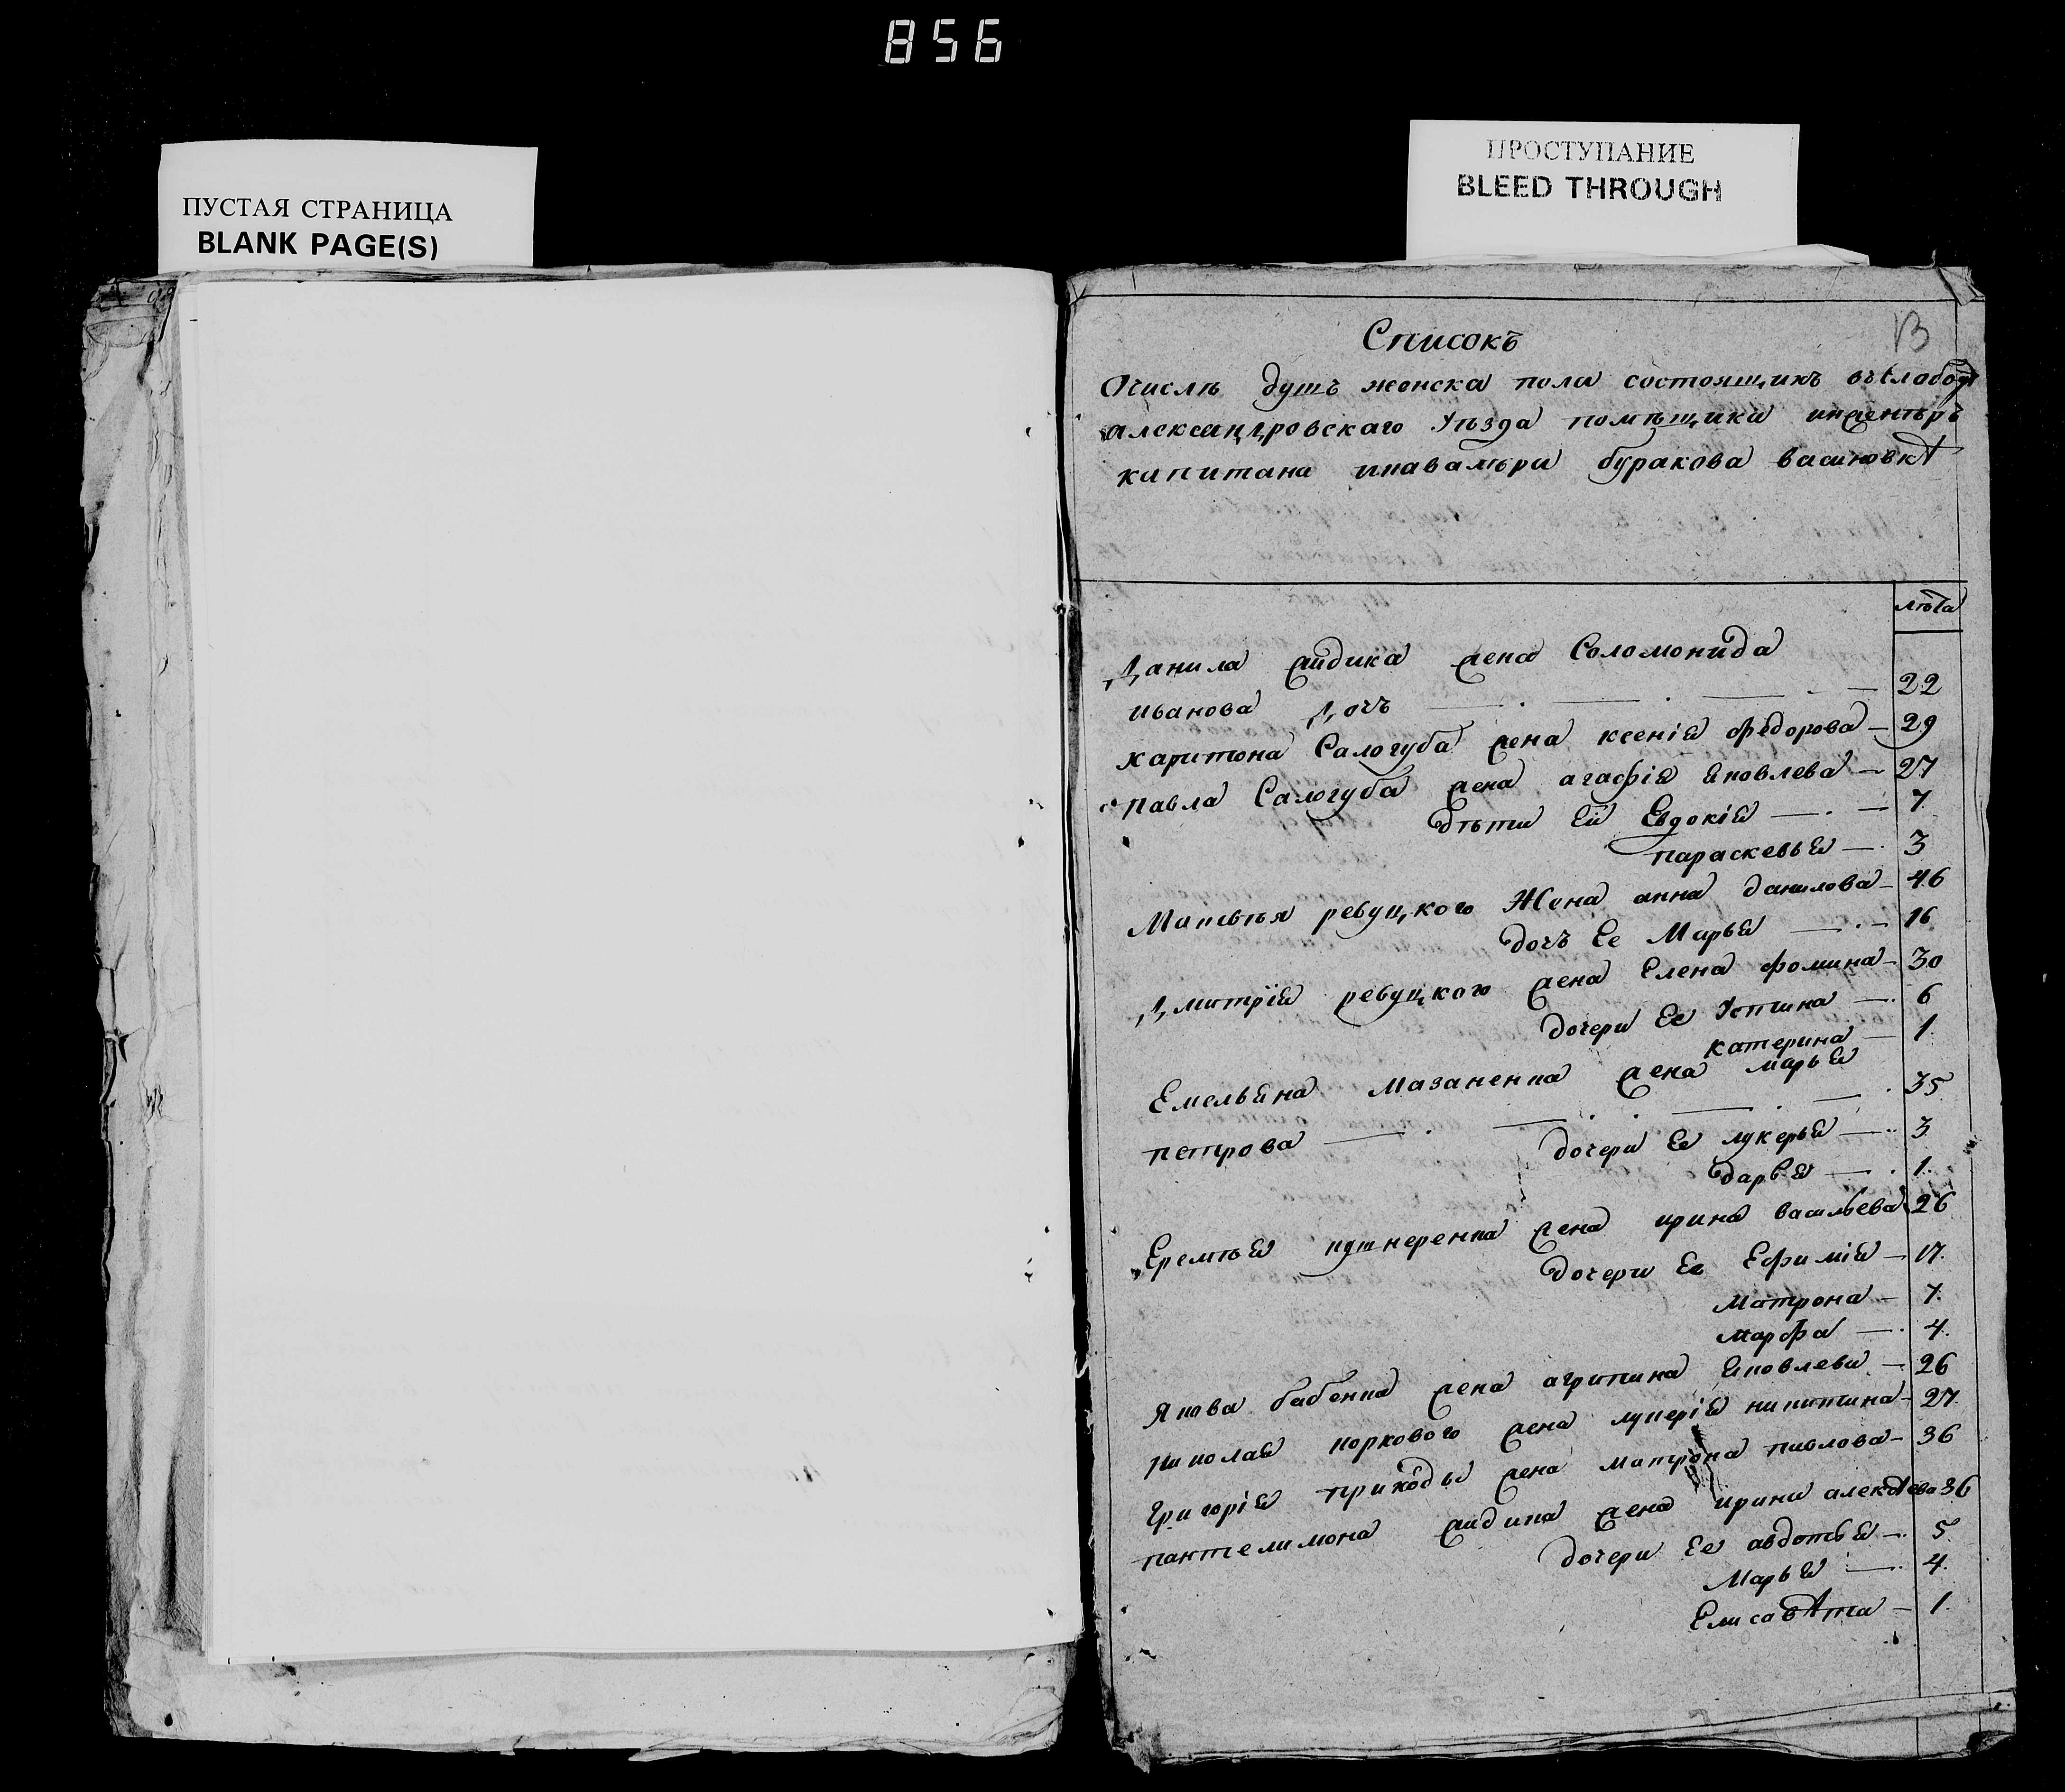 856
ПУСТАЯ СТРАНИЦА
BLANK PAGE(S)
ПРОСТУПАНИЕ
BLEED THROUGH
Списокъ
Очислѣ душъ женска пола состоящихъ въ слабоде
александровскаго Уѣзда помѣщика инженеръ
капитана икавалѣра буракова
лѣта
Данила жена Соломонида
иванова дочъ 22
харитона Салогуба жена ксенія федорова 29
Павла Салогуба жена агафія яковлева 27
дѣти Ей Евдокія 7
параскевья 3
Матвѣя ревуцкого Жена анна данилова 46
дочъ Ее Марья 16
Дмитрія ревуцкого жена Елена фомина 30
дочери Ее Устина 6
катерина 1
Емельяна мазаненка жена марья
петрова 35
дочери Ее лукерья 3
дарья 1
Еремѣя кушнеренка жена ирина васильева 26
дочери Ее Ефимія 17
Матрона 7
Марфа 4
Якова бабенка жена агрипина яковлева 26
николая коркового жена лукерія никитина 27
григорія приходы жена матрона павлова 36
пантелимона жена ирина 36
дочери Ее авдотья 5
Марья 4
Елисавета 1